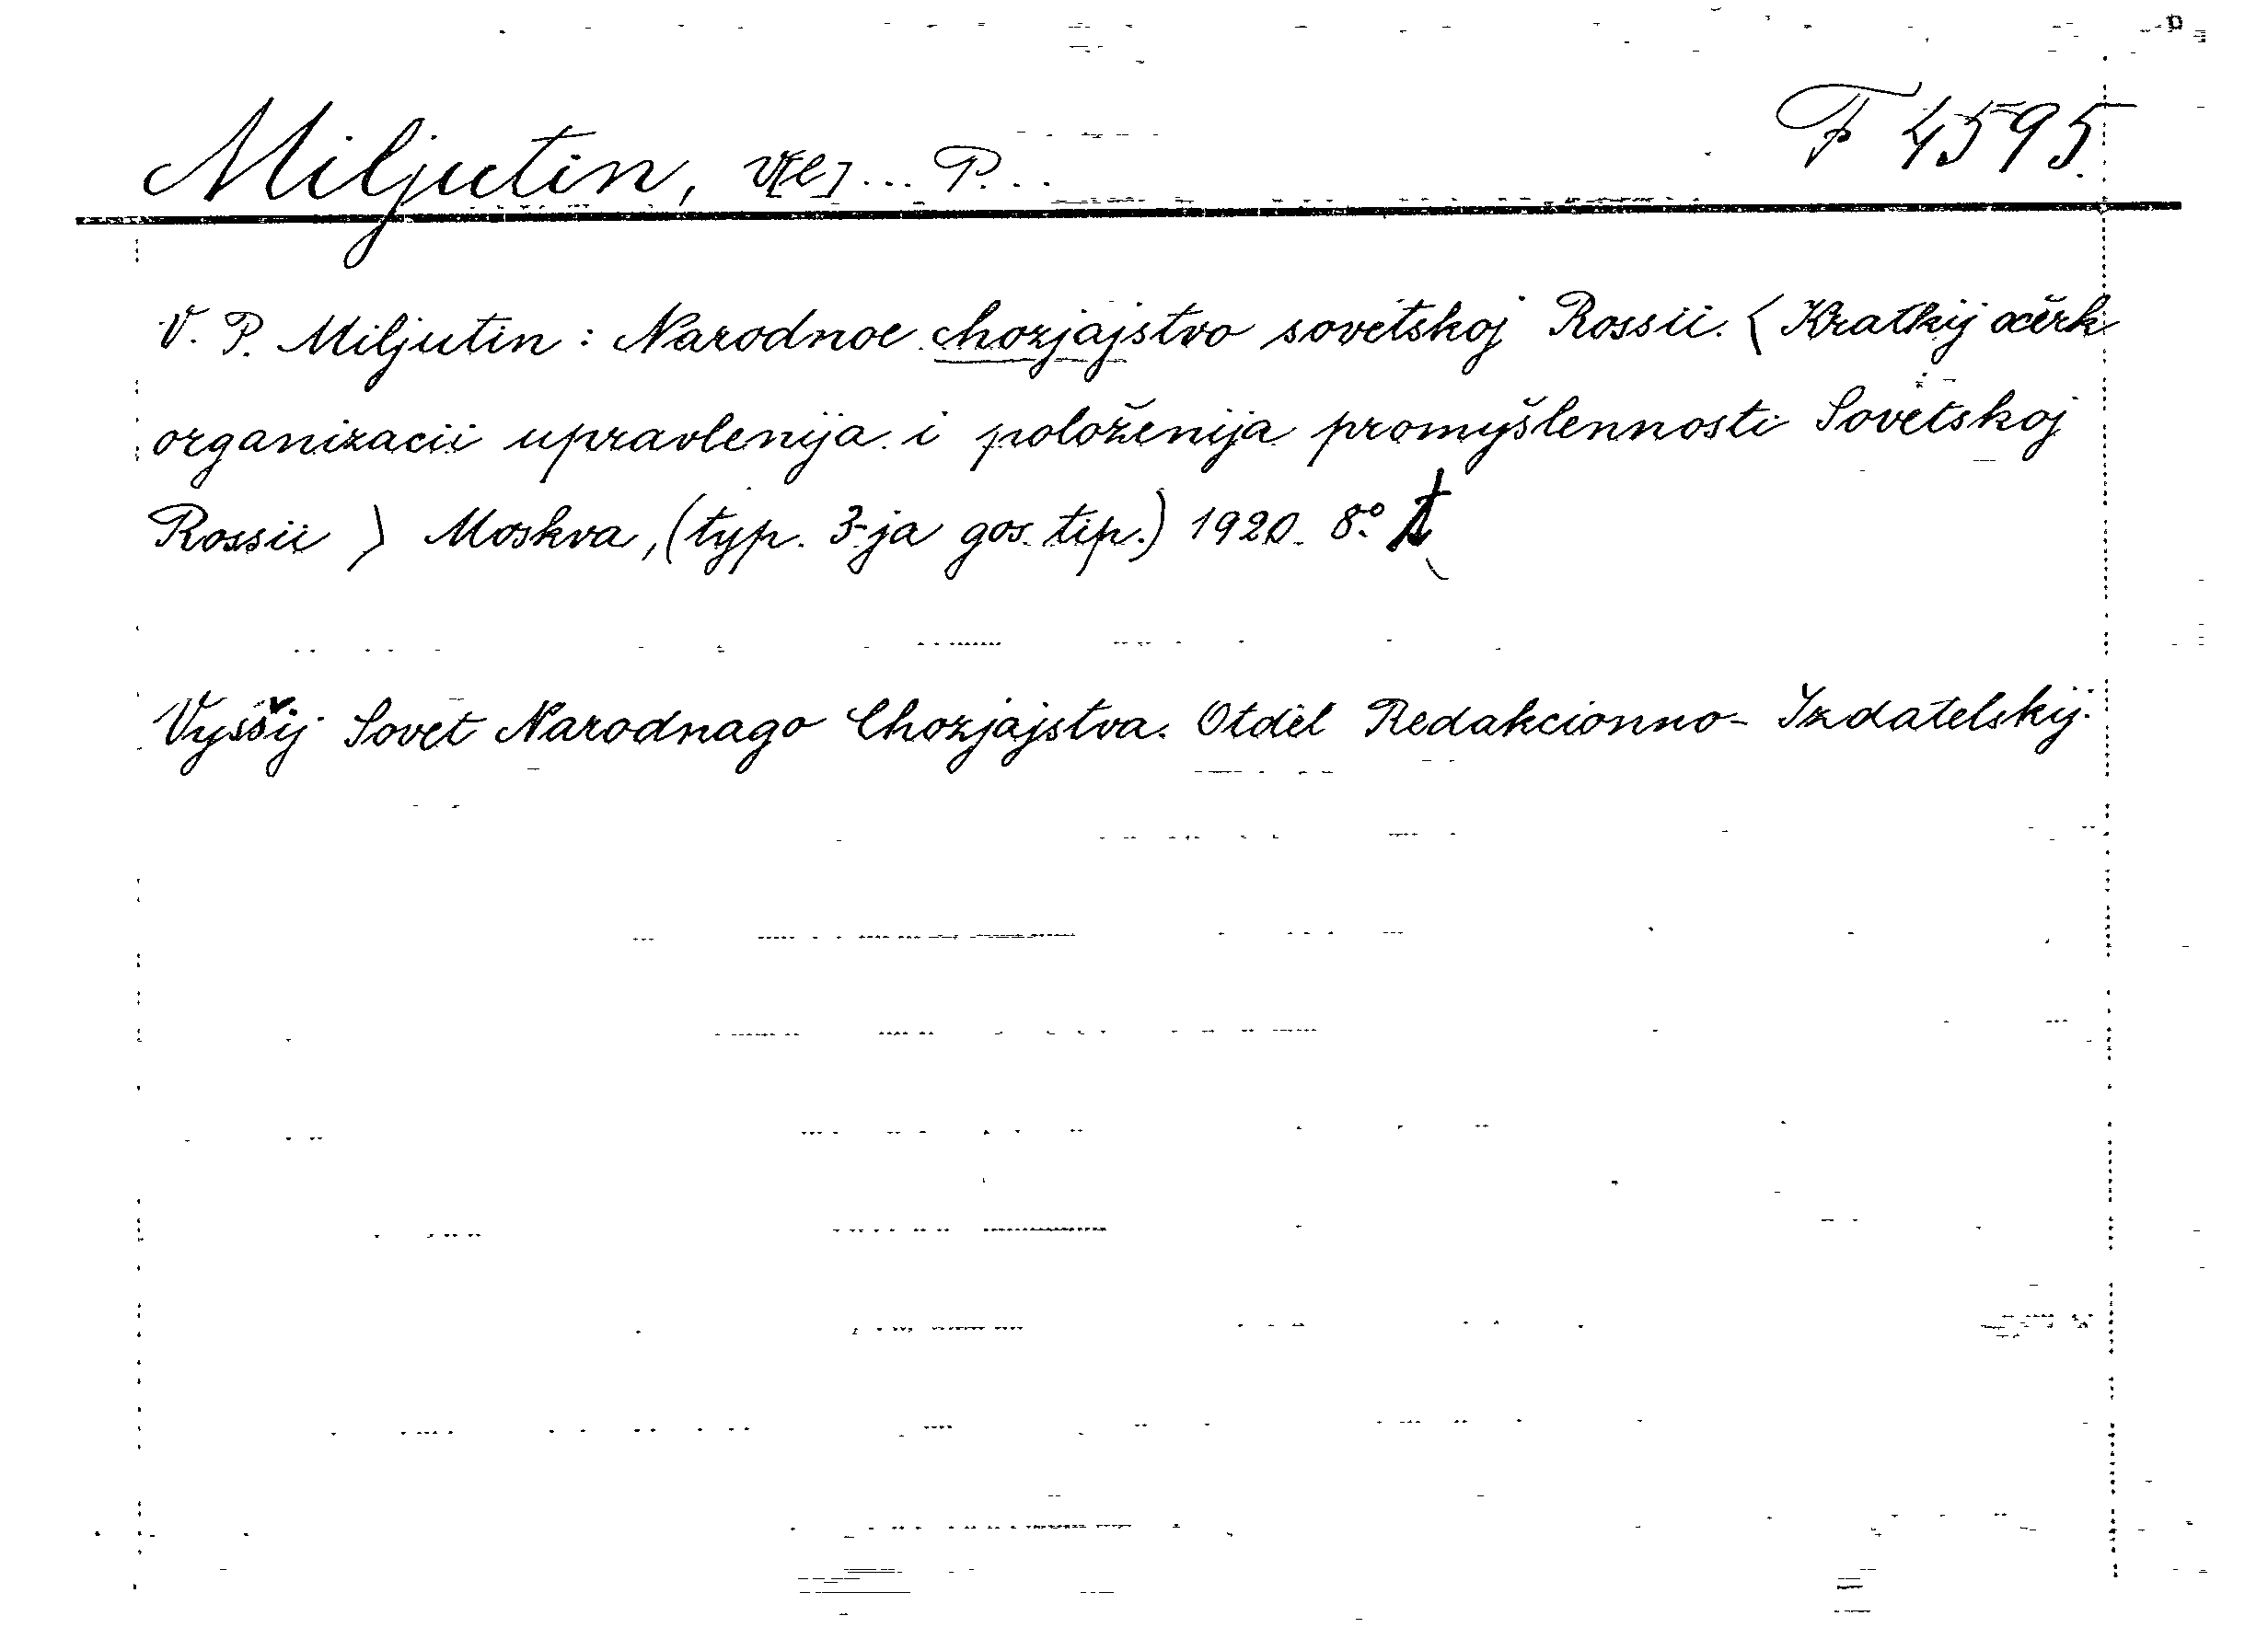 Miljutin, V[l]... P... F 4595.
V. P. Miljutin: Narodnoe chozjajstvo sovětskoj Rossii. ⟨Kratkij očerk
organizacii upravlenija i položenija promyšlennosti Sovětskoj
Rossii⟩ Moskva, (typ. 3-ja gos. tip.) 1920. 8°.
Vysšij Sovět Narodnago Chozjajstva. Otděl Redakcionno-Izdatelskij.